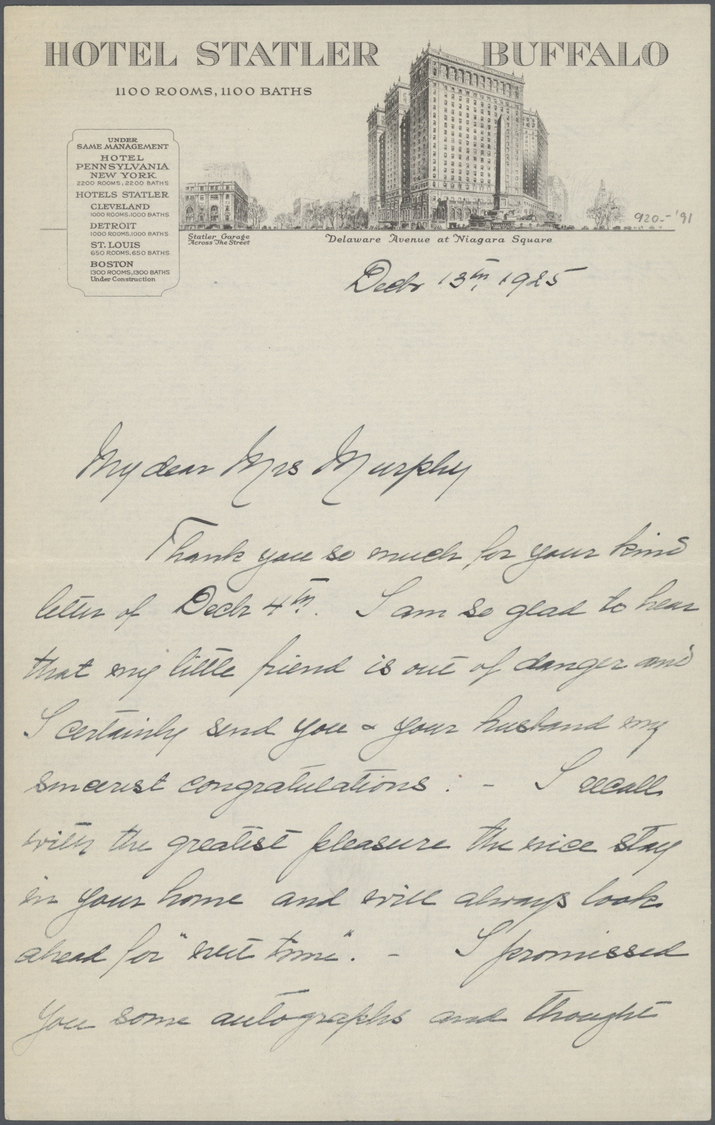 HOTEL STATLER BUFFALO
1100 ROOMS, 1100 BATHS
UNDER
SAME MANAGEMENT
HOTEL
PENNSYLVANIA
NEW YORK
2200 ROOMS, 2200 BATHS
HOTELS STATLER
CLEVELAND
1000 ROOMS, 1000 BATHS
DETROIT
1000 ROOMS, 1000 BATHS
ST. LOUIS
650 ROOMS, 650 BATHS
BOSTON
1300 ROOMS, 1300 BATHS
Under Construction
Statler Garage
Across The Street
Delaware Avenue at Niagara Square
920.-'91
Decbr 13th, 1925
My dear Mrs Murphy
Thank you so much for your kind
letter of Decbr 4th. I am so glad to hear
that my little friend is out of danger and
I certainly send you & your husband my
sincerest congratulations: - I recall
with the greatest pleasure the nice stay
in your home and will always look
ahead for "next time". - I promissed
you some autographs and thought